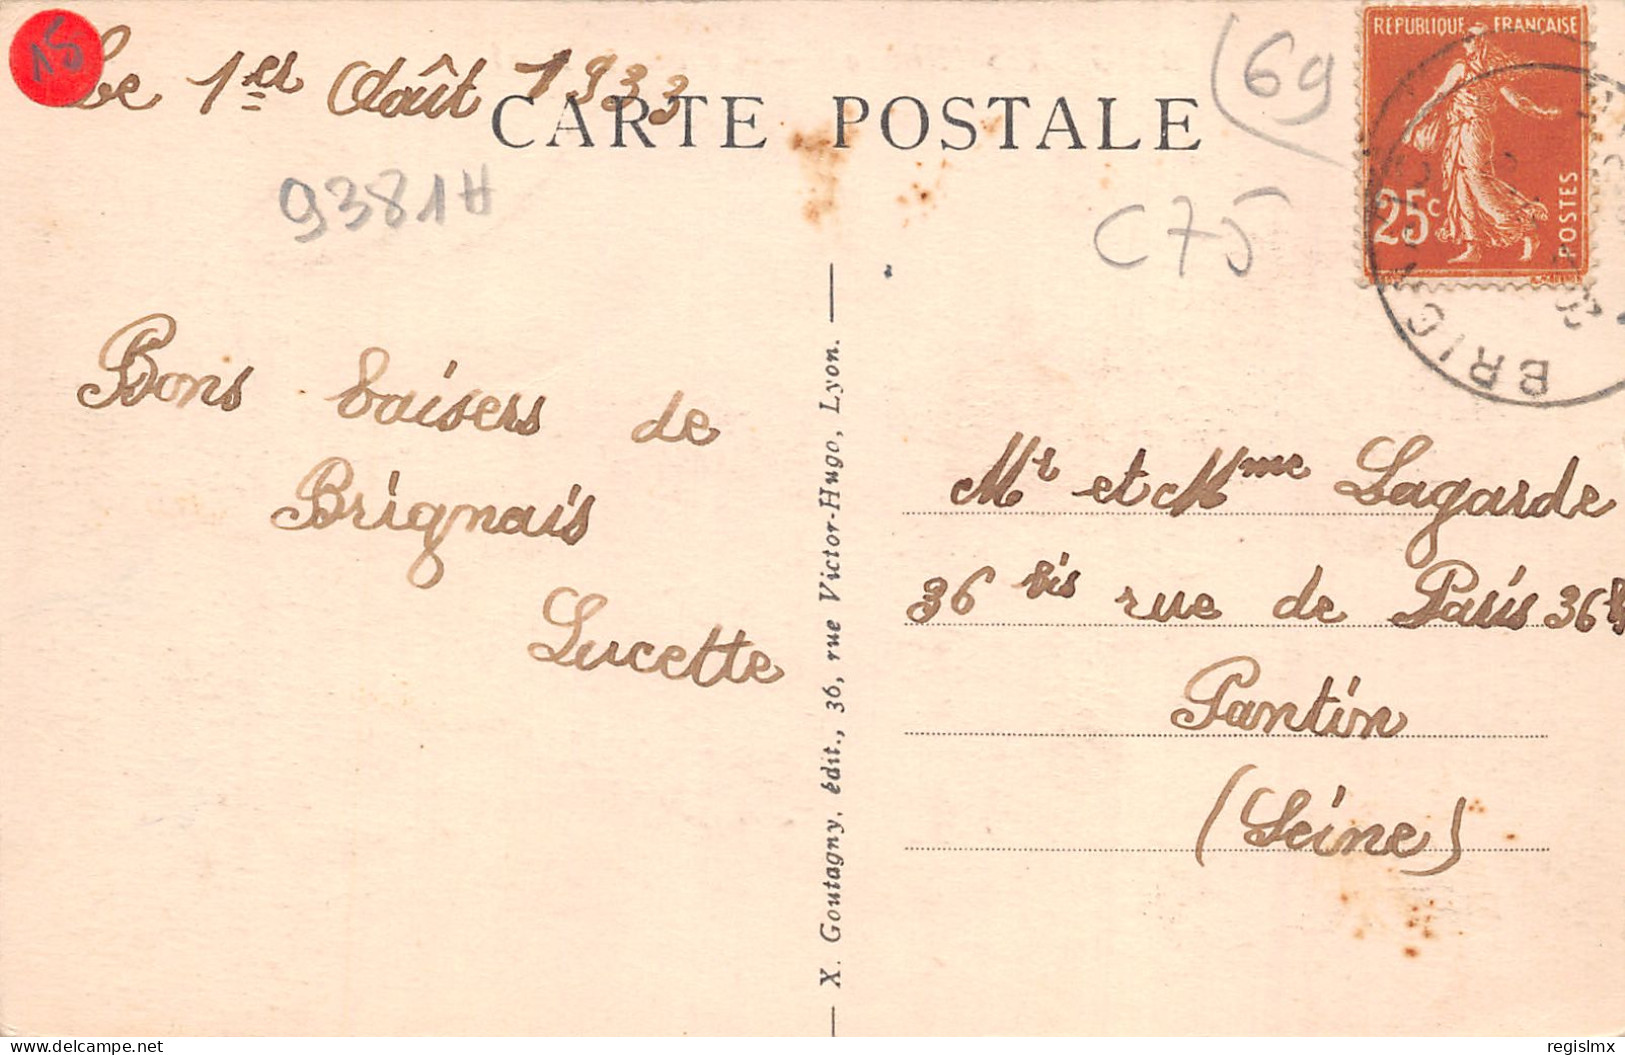 15
Le 1er Août 1933
CARTE POSTALE
(69
RÉPUBLIQUE FRANÇAISE
25c
POSTES
9381H
C75
Bons baisers de
Brignais
Lucette
X. Goutagny, édit., 36, rue Victor-Hugo, Lyon.
Mr et Mme Lagarde
36 bis rue de Paris 36 bis
Pantin
(Seine)
delcampe.net
regislmx